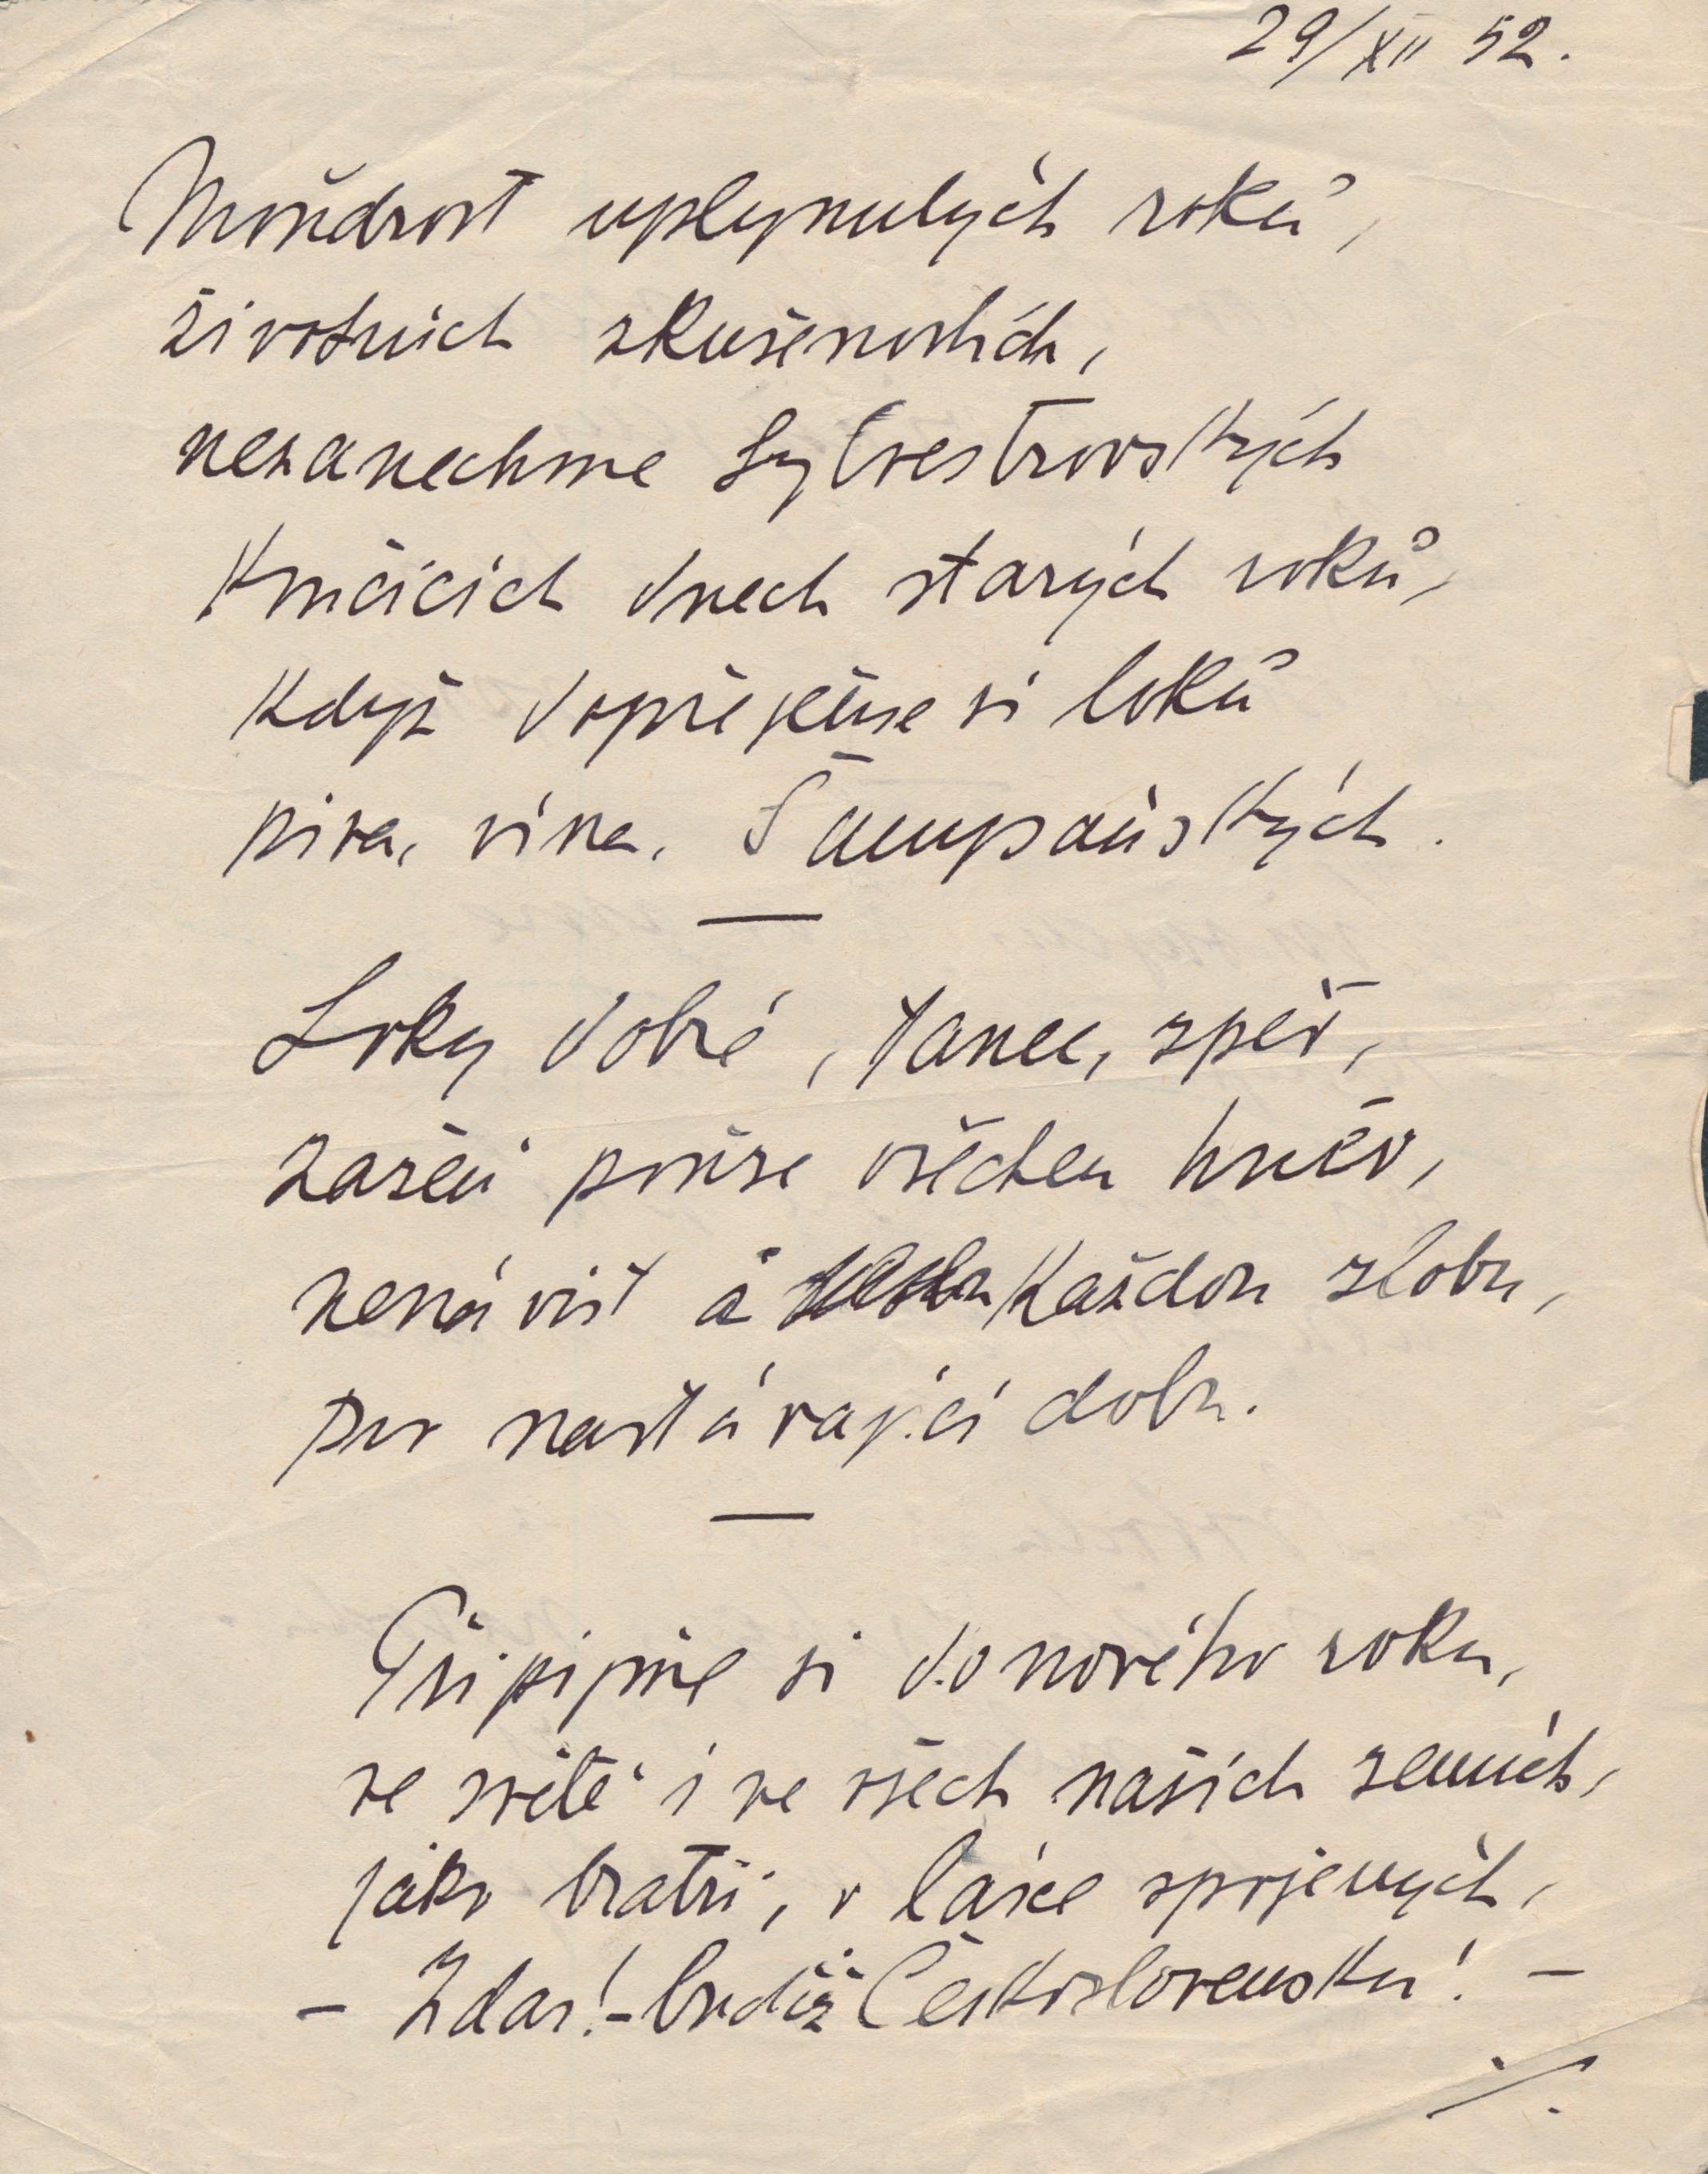 29/XII 52.
Moudrost uplynulých roků,
životních zkušenostích,
nezanechme Sylvestrovských
končících dnech starých roků,
když dopřejéme si loků
piva, vína, Šampaňských.
Loky dobré, tanec, zpěv,
zažeň pouze všechen hněv,
nenávist a každou zlobu,
pro nastávající dobu.
Připijme si do nového roku,
ve světě i ve všech našich zemích,
jako bratří, v lásce spojených,
– Zdar! – budiž Československu! –
./.